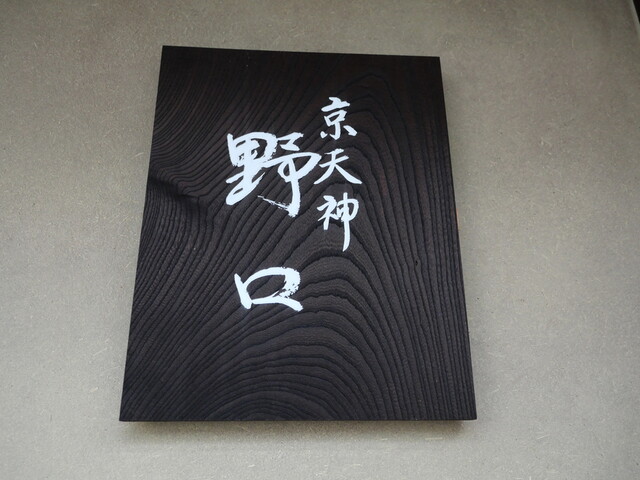 京天神
野口